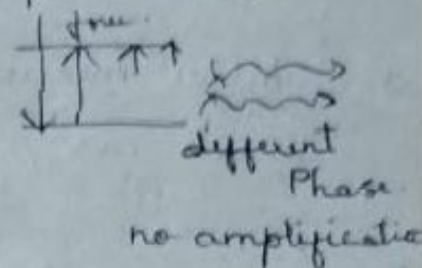 different
Phase.
no amplificatio